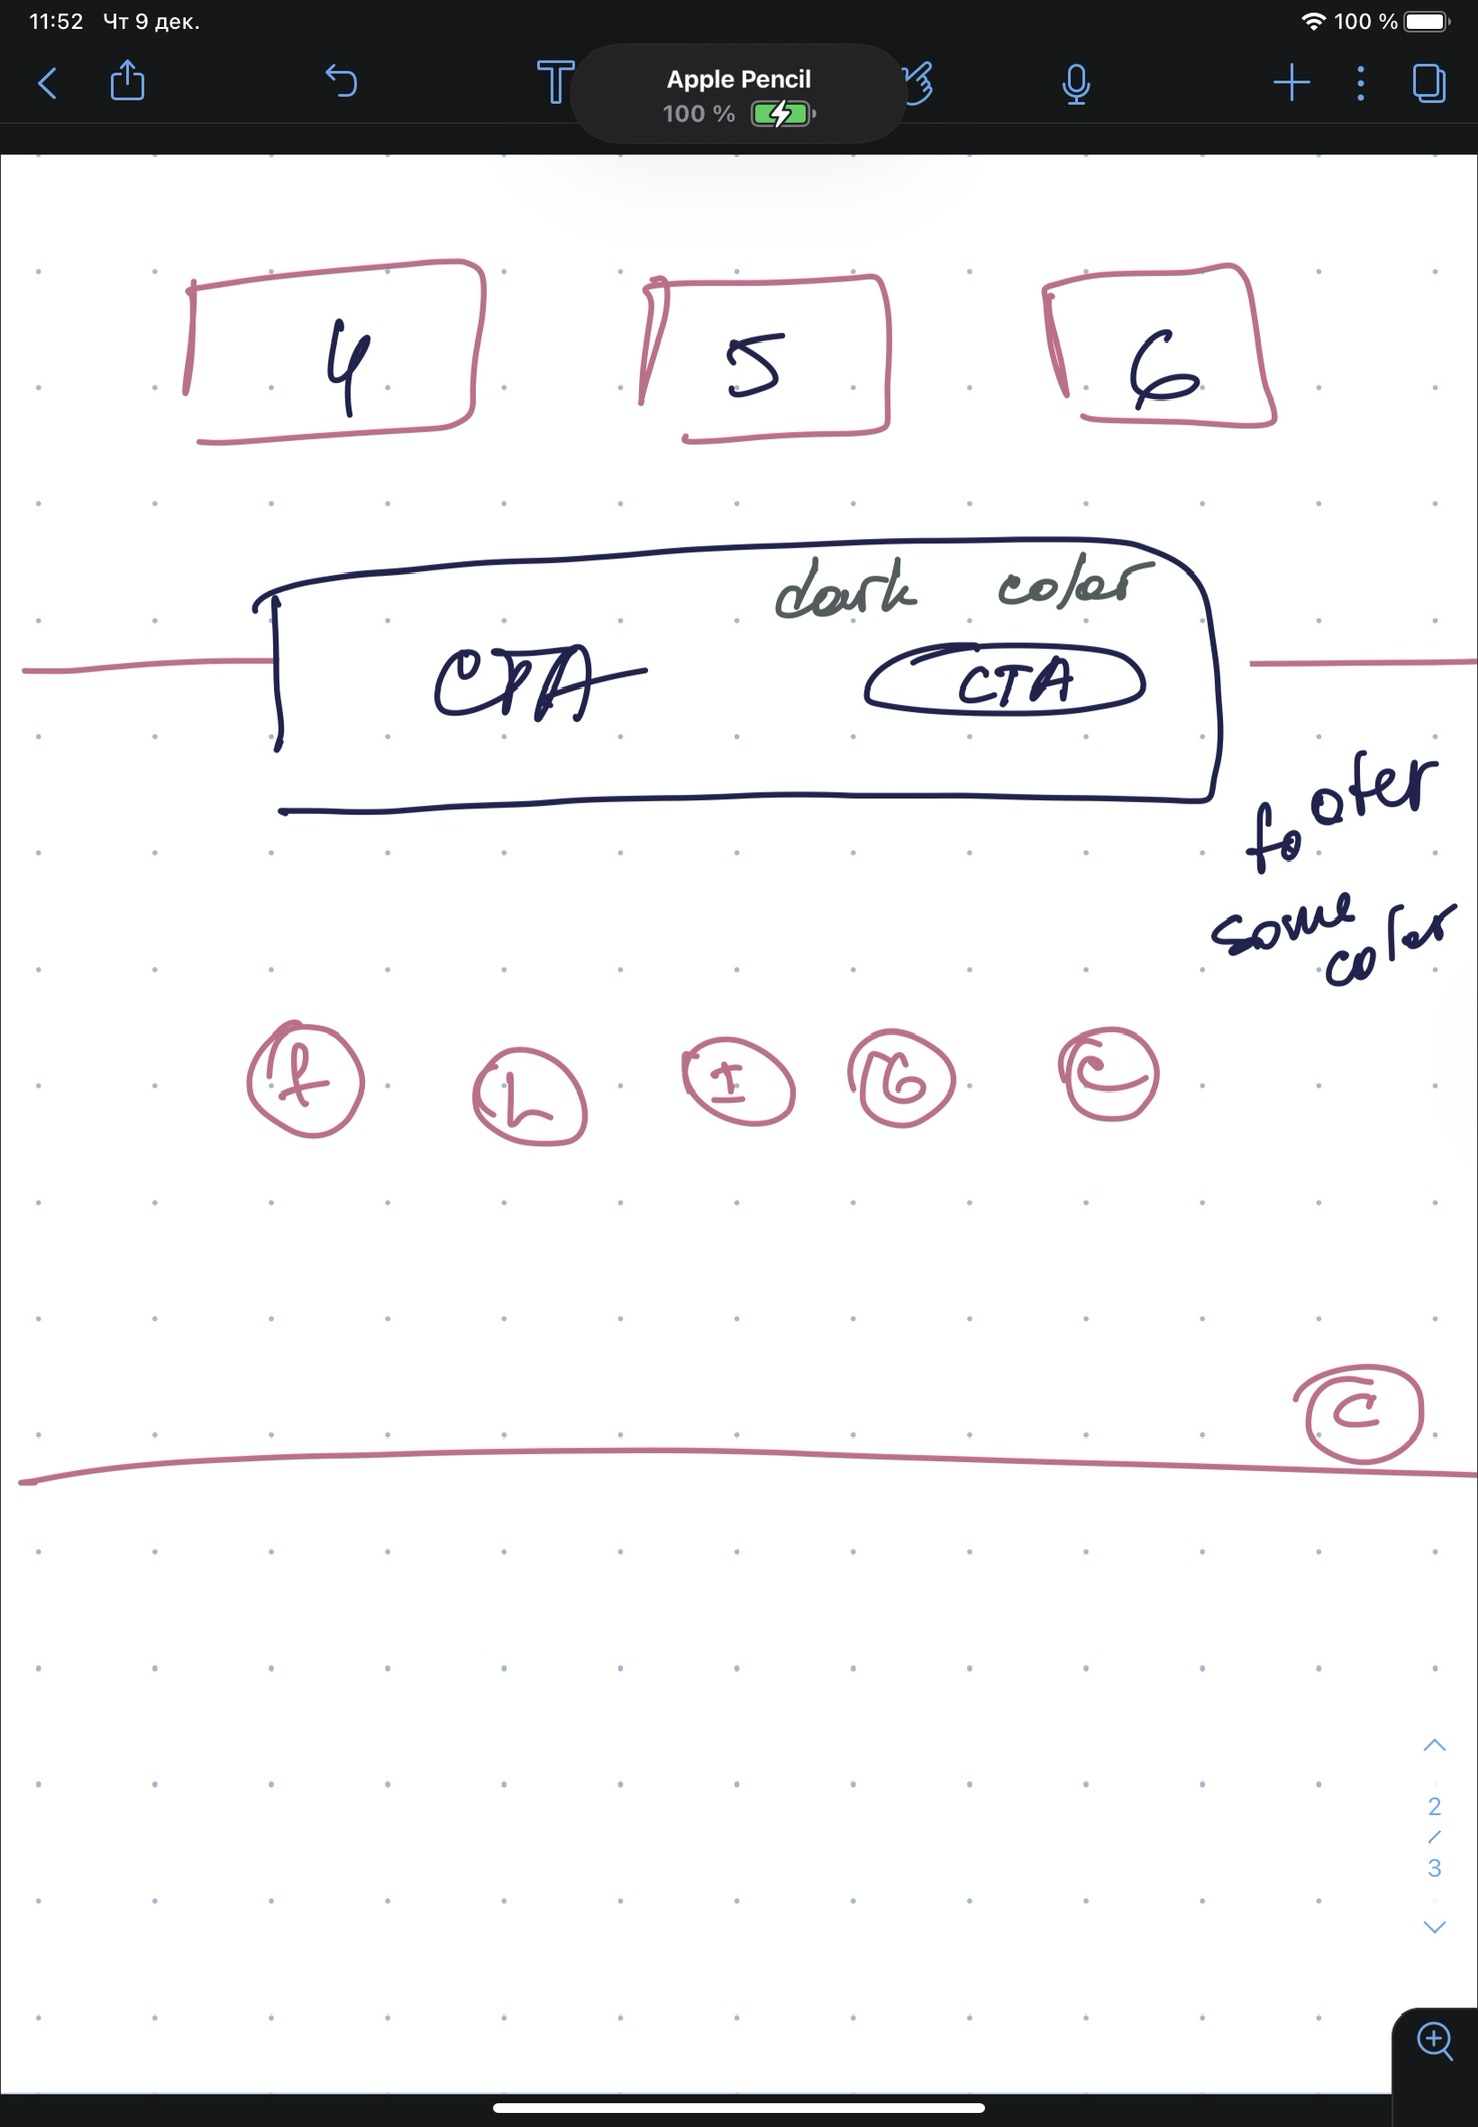 11:52 Чт 9 дек. 100 %
Apple Pencil
100 %
4 5 6
dark color
CTA CTA
footer
some
color
f L I G C
C
2
/
3